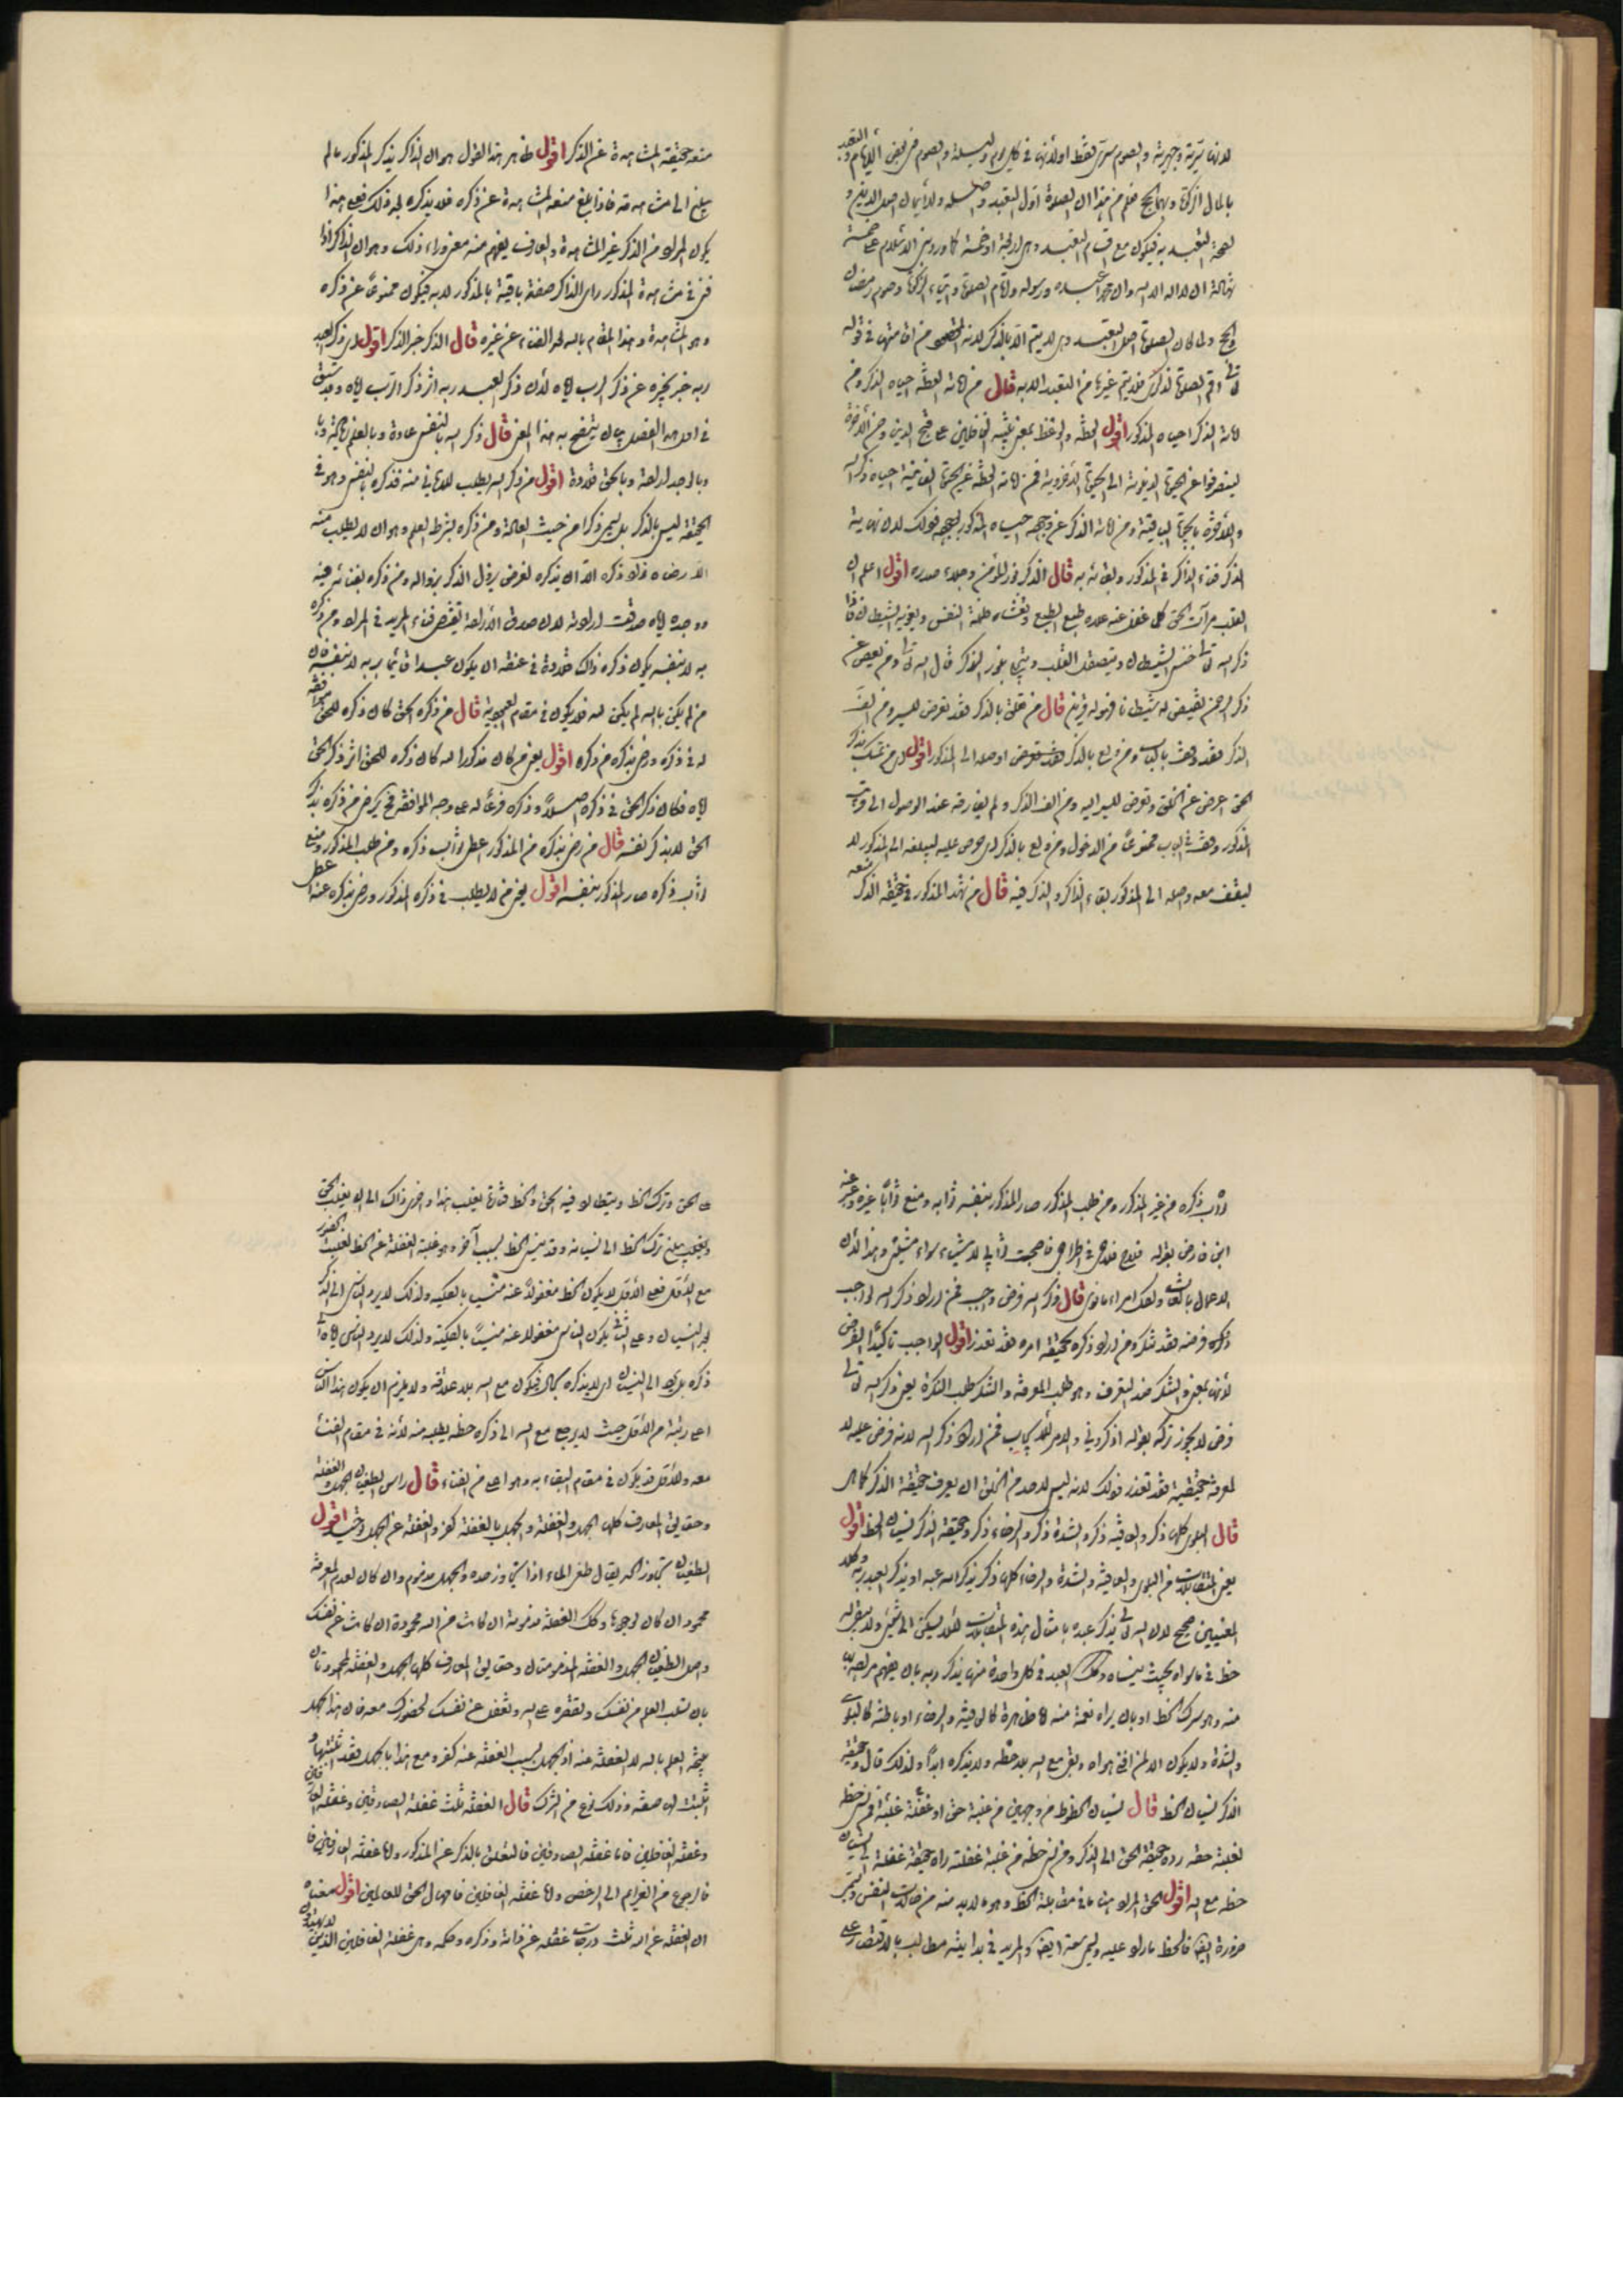 لانها سرية وجهرية والصوم سرى فقط اولانها فى كل يوم وليلة والصوم فى بعض الايام والتعبد
بالمال الزكوة وبهما الحج فعلم من هذا ان الصلوة اول التعبد واصله والايمان اصل الدين و
لصحة التعبد به فيكون مع اقسام التعبد وهى اربعة او خمسة كما ورد بنى الاسلام على خمسة
شهادة ان لا اله الا الله وان محمدا عبده ورسوله واقام الصلوة وايتاء الزكوة وصوم رمضان
والحج ولما كان الصلوة اصل التعبد وهى لا يتم الا بالذكر لانه المقصود من اقامتها فى قوله
تعالى اقم الصلوة لذكرى فلا يتم غيرها من التعبد الا به قال من اماته العظة احياه الذكر ومن
اماته الذكر احياه المذكور اقول العظة والوعظ بمعنى تنبيه الغافلين على قبح الدنيا وحسن الآخرة
لينصرفوا عن الحيوة الدنيوية الى الحيوة الاخروية فمن اماته العظة عن الحيوة الفانية احياه ذكر الله
والآخرة بالحيوة الباقية ومن اماته الذكر عن وجهه احياه المذكور بوجهه وذلك لان نهاية
الذكر فناء الذاكر فى المذكور وبقائه به قال الذكر نور المؤمن وجلاء صدره اقول اعلم ان
القلب مرآت الحق كلما غفل عنه علاه طبع الطبع وتغشاه ظلمة النفس ويغويه الشيطان فاذا
ذكر الله تعالى خنس الشيطان ويتصقل القلب وينجلى بنور الذكر قال الله تعالى ومن يعش عن
ذكر الرحمن نقيض له شيطانا فهو له قرين قال من تعلق بالذكر فقد تعرض للسير ومن الف
الذكر فقد وقف بالباب ومن ولع بالذكر فقد اوصله الى المذكور اقول اى من تمسك بذكر
الحق اعرض عن الخلق وتعرض للسير اليه ومن الف الذكر ولم يفارقه عند الوصول الى قرب
المذكور وقف بالباب ممنوعا من الدخول ومن ولع بالذكر اى حرص عليه ليبلغه الى المذكور لا
ليقف معه وصل الى المذكور بقاء الذاكر والذكر فيه قال من شهد المذكور فى حقيقة الذكر
منعه حقيقة المشاهدة عن الذكر اقول ظاهر هذا القول هو ان الذاكر يذكر المذكور ما لم
يبلغ الى مشاهدته فاذا بلغ منعه المشاهدة عن ذكره فلا يذكره بعد ذلك فعلى هذا
يكون المراد من الذكر غير المشاهدة والعارف يفهم منه معنى وراء ذلك وهو ان الذاكر اذا
فنى فى مشاهدة المذكور راى الذاكر صفة باقية بالمذكور لا به فيكون ممنوعا عن ذكره
وهو المشاهدة وهذا المقام بالله بعد الفناء عن غيره قال الذكر خبر الذكر اقول اى ذكر العبد
ربه خبر يخبره عن ذكر الرب اياه لان ذكر العبد ربه اثر ذكر الرب اياه وقد سبق
فى اول هذا الفصل بيان يتضح به هذا المعنى قال ذكر الله بالنفس عادة وبالعلم
وبالوجد ارادة وبالحق قلادة اقول من ذكر الله لطلب الامانى منه فذكره بالنفس وهو فى
الحقيقة ليس بالذكر بل يسمى ذكرا من حيث العادة ومن ذكره بشرط العلم وهو ان لا يطلب منه
الا رضاه فذلك ذكره الا ان يذكره لغرض يزول الذكر بزواله ومن ذكره بفنائه فيه
ووجده اياه صدقت ارادته لان صدق الارادة يقتضى فناء المريد فى المراد ومن ذكره
به لا بنفسه يكون ذكره ذلك قلادة فى عنقه ان يكون عبدا قائما بربه لا بنفسه فان
من لم يكن بالله لم يكن لله فلا يكون فى مقام العبودية قال من ذكره الحق كان ذكره للحق موافقة
له فى ذكره ورضى بذكره من ذكره اقول يعنى من كان مذكورا لله كان ذكره للحق اثر ذكر الحق
اياه فكان ذكر الحق فى ذكره اصلا وذكره فرعا له على وجه الموافقة يرضى من ذكره بذكر
الحق لا بذكر نفسه قال من رضى بذكره من المذكور اعطى ثواب ذكره ومن طلب المذكور ومنع
ثواب ذكره صار المذكور بنفسه اقول يعنى من لا يطلب فى ذكره المذكور ورضى بذكره عنه اعطى
ثواب ذكره من غير المذكور ومن طلب المذكور صار المذكور بنفسه ثوابه ومنع ثوابا غيره وعبر عنه
ابن فارض بقوله
الاعمال بالنيات ولكل امرء ما نوى قال ذكر الله فرض واجب فمن اراد ذكر الله لواجب
ذكره فرضه فقد شكر ومن اراد ذكره بحقيقة امره فقد تعذر اقول الواجب تاكيد الفرض
لانها بمعنى والتنكر ضد التعرف وهو طلب المعرفة والتنكر طلب النكرة يعنى ذكر الله تعالى
فرض لا يجوز تركه بقوله اذكرونى والامر للايجاب فمن اراد ذكر الله لانه فرض عليه لا
لمعرفة حقيقته فقد تعذر وذلك لانه ليس لاحد من الخلق ان يعرف حقيقة الذكر كما هى
قال البلوى كلها ذكر والعافية ذكر والشدة ذكر والرخاء ذكر وحقيقة الذكر نسيان الحظ اقول
يعنى المتقابلات من البلوى والعافية والشدة والرخاء كلها ذكر يذكر الله عبده او يذكر العبد ربه وكلا
المعنيين صحيح لان الله تعالى يذكر عبده بامثال هذه المتقابلات لئلا يسكن الى شئ ولا يبقى له
حظ فى ما سواه بحيث ينساه وكذلك العبد فى كل واحدة منها يذكر ربه بان يفهم مراده
منه وهو ترك الحظ او بان يراه نعمة منه اما ظاهرة كالعافية والرخاء او باطنة كالبلوى
والشدة ولا يكون الا لمن افنى هواه وبقى مع الله بلا حظ ولا يذكره ابدا ولذلك قال وحقيقة
الذكر نسيان الحظ قال نسيان الحظوظ من وجهين من غلبة حق او غفلة غلبة فمن نسى حظه
لغلبة حقه رده حقيقة الحق الى الذكر ومن نسى حظه من غلبة غفلته راه حقيقة غفلة نسيان
حظه مع الله اقول الحق المراد هنا ما فى مقابلة الحظ وهو ما لا بد منه من حالات النفس ويسمى
ضرورة ايضا فالحظ ما زاد عليه ويسمى سعة ايضا والمريد فى بدايته مطالب بالاقتصار على
على الحق وترك الحظ ويتطارد فيه الحق والحظ فتارة يغلب هذا واخرى ذاك الى ان يغلب الحق
ويغلب يبلغ ترك الحظ الى نسيانه وقد ينسى الحظ بسبب آخر وهو غلبة الغفلة عن الحظ لغلبة الحضور
مع الاول فعلى الاول لا يكون الحظ مغفولا عنه منسيا بالكلية ولذلك لا يرد الناسى الى الذكر
بعد النسيان وعلى الثانى يكون الناسى مغفولا عنه منسيا بالكلية ولذلك لا يرد الناسى اياه الى
ذكره بل يرد الى النسيان اى لا يذكره بحال فيكون مع الله بلا علاقة ولا يلزم ان يكون هذا الناسى
اعلى رتبة من الاول حيث لا يرجع مع الله الى ذكره حظه يطلبه منه لانه فى مقام الفناء
معه والاول قد يكون فى مقام البقاء به وهو اعلى من الفناء قال راس الطغيان الجهل والغفلة
وحقايق المعارف كلها الجهل والغفلة والجهل بالغفلة كفر والغفلة عن الجهل اقول
الطغيان تجاوز الحد يقال طغى الماء اذا تجاوز حده والجهل مذموم وان كان لعدم المعرفة
محمود ان كان لوجودها وكذلك الغفلة مذمومة ان كانت من الله محمودة ان كانت عن نفسك
واصل الطغيان الجهل والغفلة المذمومتان وحقايق المعارف كلها الجهل والغفلة المحمودتان
بان تسلب العلم من نفسك وتقصره على الله وتغفل عن نفسك لحضورك معه فان هذا الجهل
نتيجة العلم بالله لا الغفلة عنه اذ الجهل بسبب الغفلة عنه كفر ومع هذا بالجهل فقد
اثبت لها صفة وذلك نوع من الشرك قال الغفلة ثلث غفلة الصادقين وغفلة العارفين
وغفلة الغافلين فاما غفلة الصادقين فالتعلق بالذكر عن المذكور واما غفلة العارفين فا
فالرجوع من العزايم الى الرخص واما غفلة الغافلين فاهمال الحق للعالمين اقول معناه
ان الغفلة عن الله ثلث درجات غفلة عن ذاته وذكره وحكمه وهى غفلة الغافلين الذين